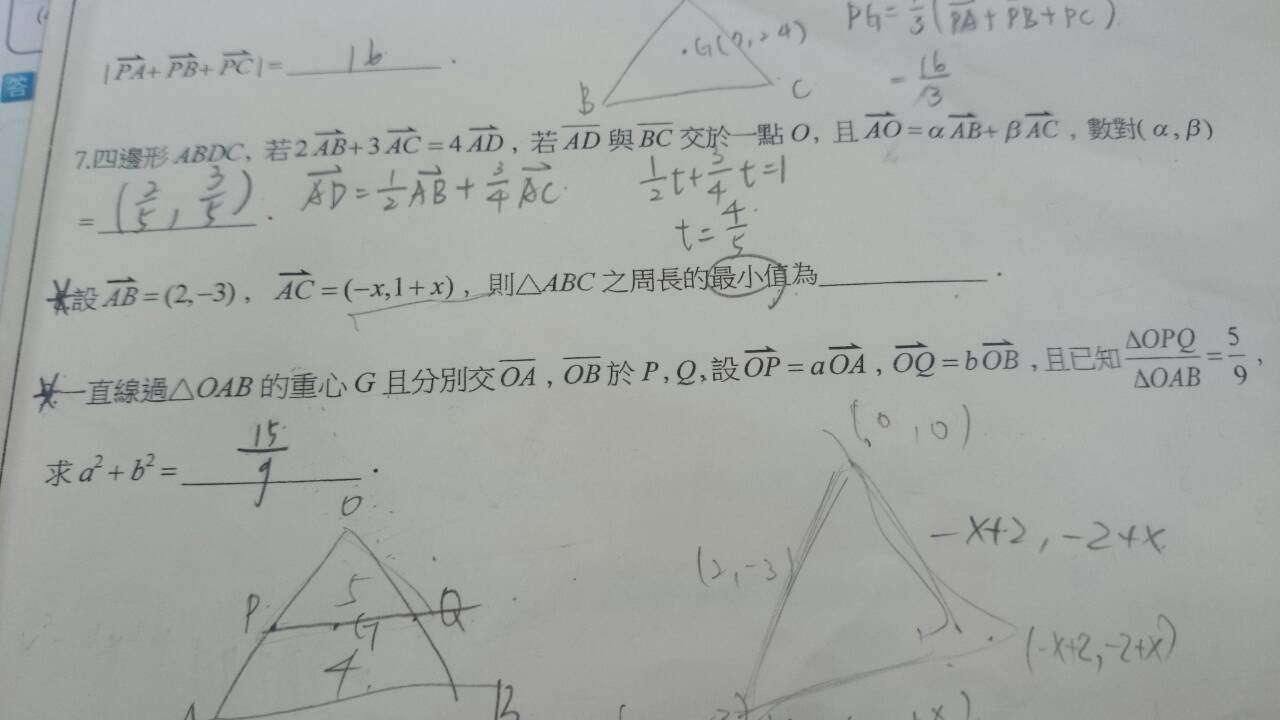 答
|PA+PB+PC|= 16 .
G(0, 2 4)
B
C
PG = 1/3 (PA+PB+PC)
= 16/3
7.四邊形 ABDC, 若 2AB+3AC=4AD, 若 AD 與 BC 交於一點 O, 且 AO=αAB+βAC, 數對(α,β)
= (2/5, 3/5) . AD = 1/2 AB + 3/4 AC
1/2 t + 3/4 t = 1
t = 4/5
設 AB=(2,-3), AC=(-x,1+x), 則△ABC 之周長的最小值為 .
一直線過△OAB 的重心 G 且分別交 OA, OB 於 P, Q, 設 OP=aOA, OQ=bOB, 且已知 ΔOPQ/ΔOAB = 5/9,
求 a²+b²= 15/9 .
(0, 0)
O
P 5 Q
G
4
A B
(2, -3)
-x+2, -2+x
(-x+2, -2+x)